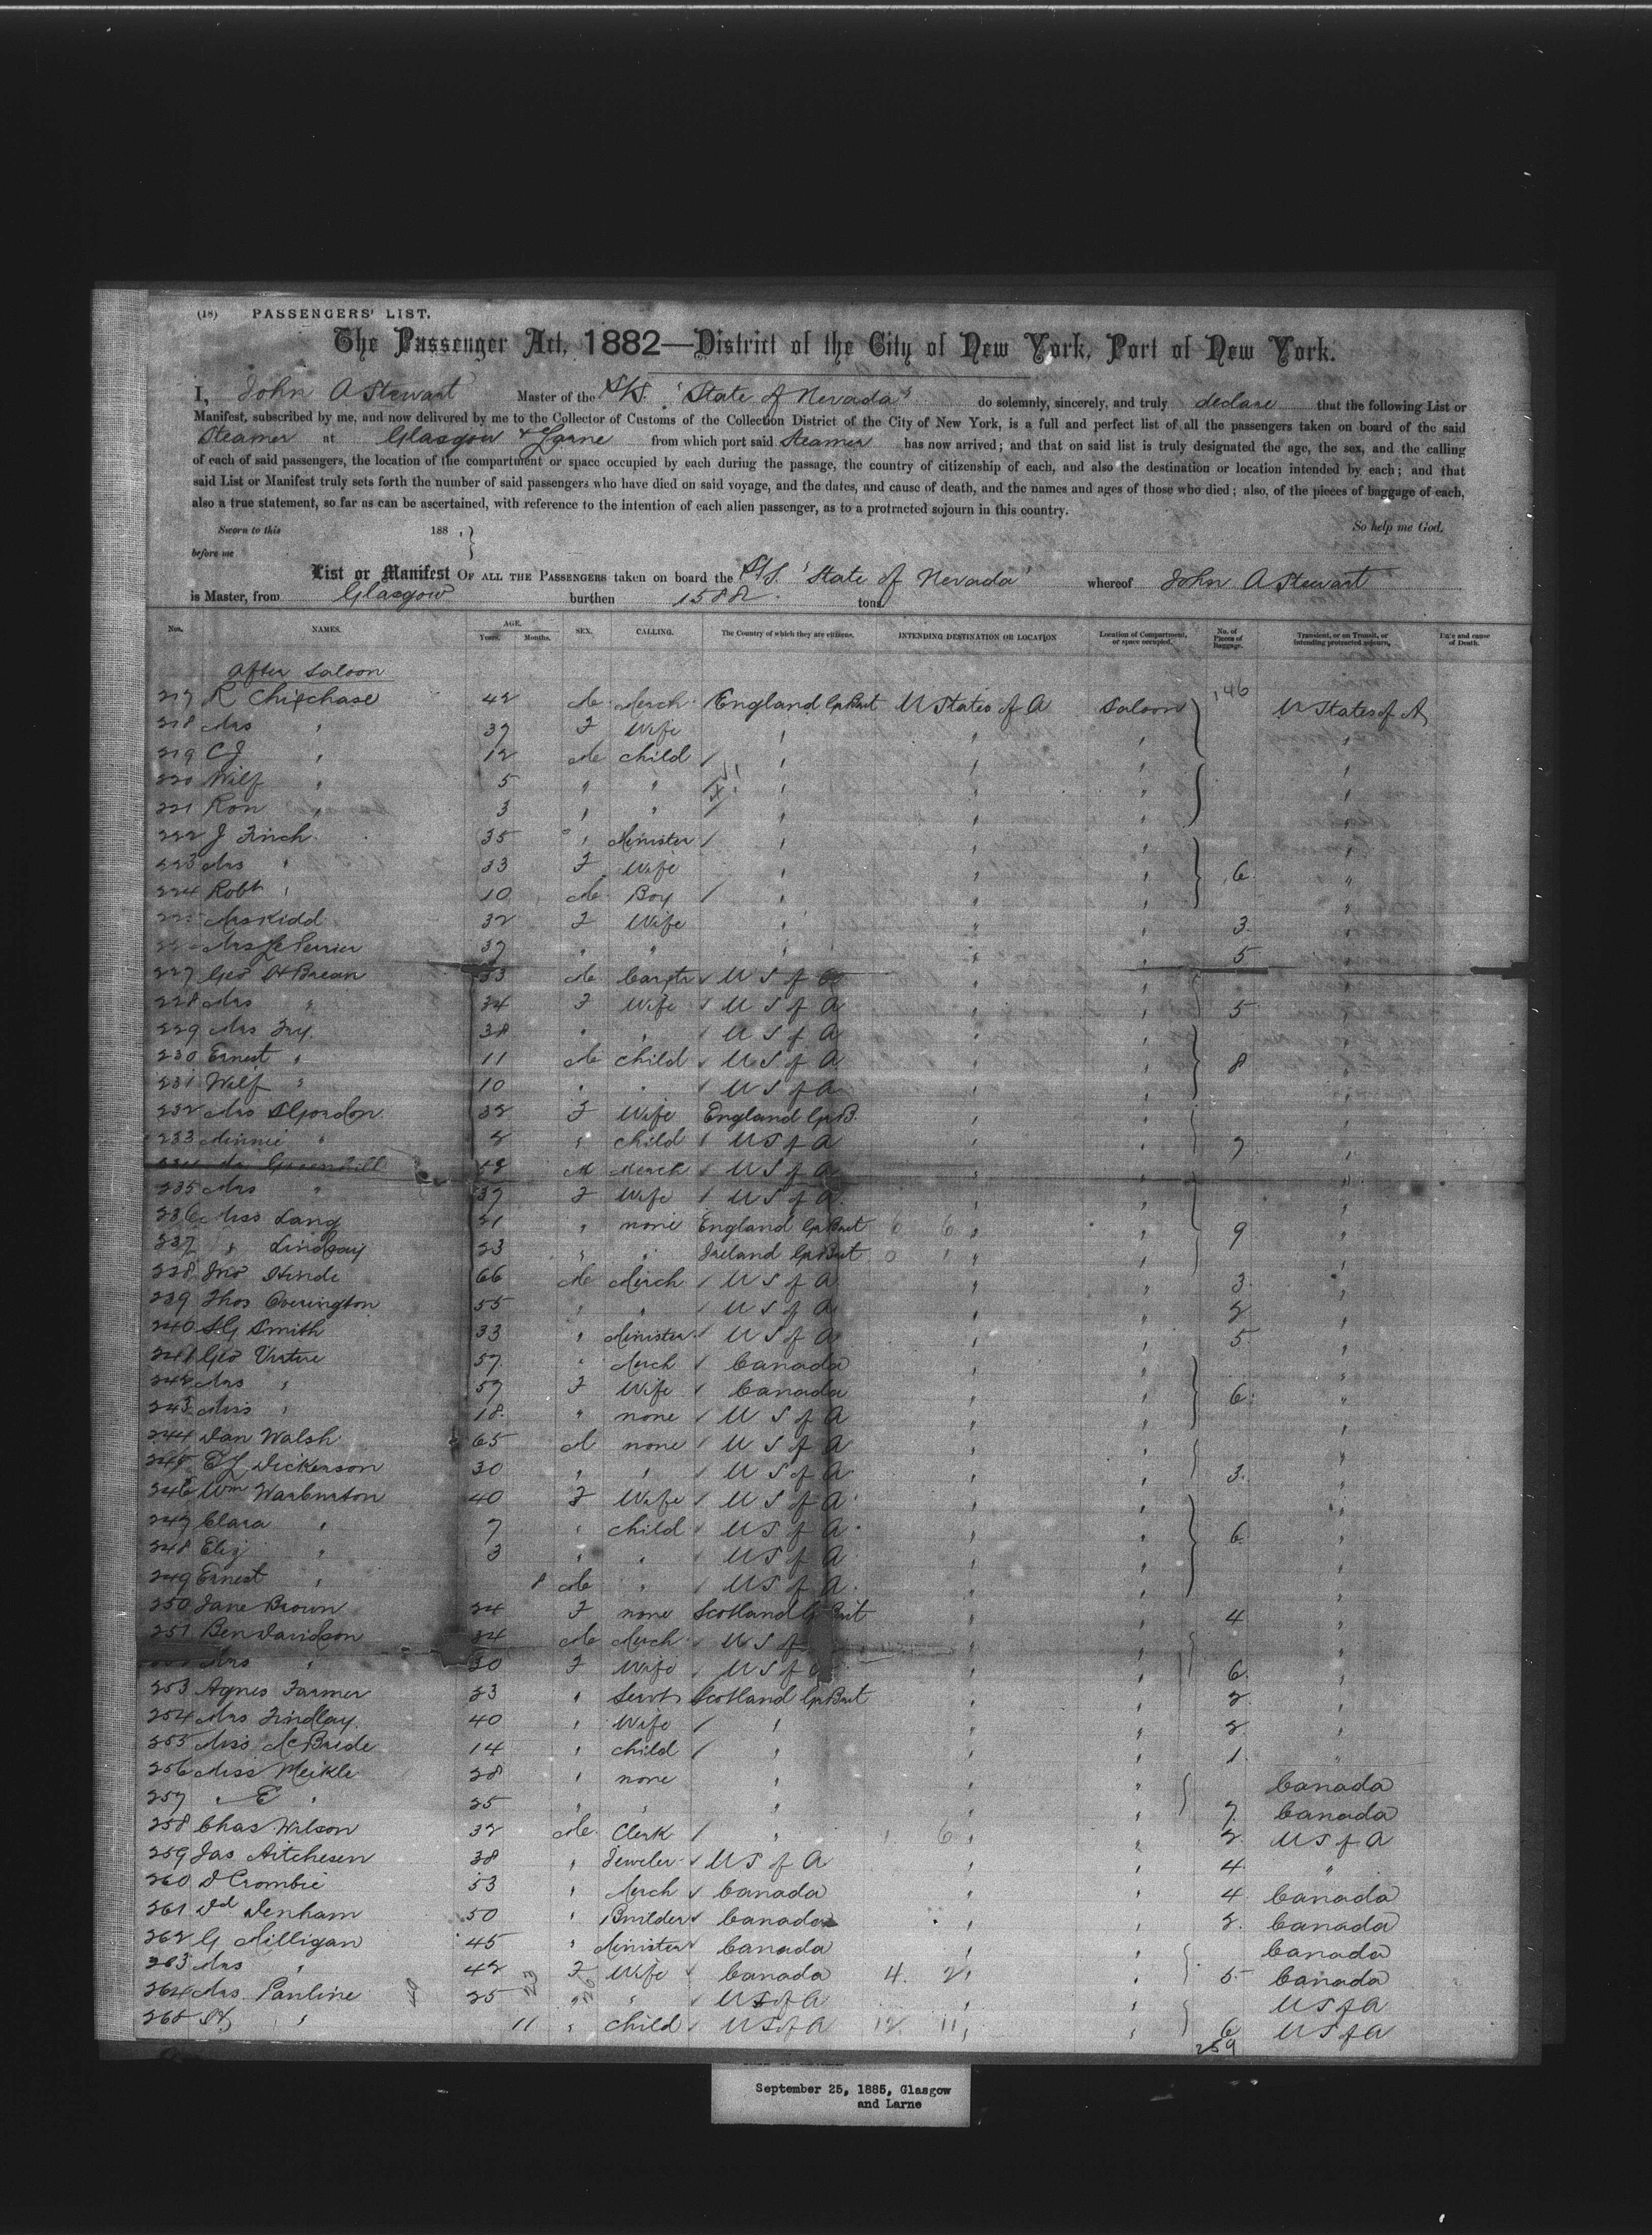 (18) PASSENGERS' LIST.
The Passenger Act, 1882—District of the City of New York, Port of New York.
I, John A Stewart Master of the S/S. 'State of Nevada' do solemnly, sincerely, and truly declare that the following List or
Manifest, subscribed by me, and now delivered by me to the Collector of Customs of the Collection District of the City of New York, is a full and perfect list of all the passengers taken on board of the said
Steamer at Glasgow & Larne from which port said Steamer has now arrived; and that on said list is truly designated the age, the sex, and the calling
of each of said passengers, the location of the compartment or space occupied by each during the passage, the country of citizenship of each, and also the destination or location intended by each; and that
said List or Manifest truly sets forth the number of said passengers who have died on said voyage, and the dates, and cause of death, and the names and ages of those who died; also, of the pieces of baggage of each,
also a true statement, so far as can be ascertained, with reference to the intention of each alien passenger, as to a protracted sojourn in this country.
Sworn to this 188 . So help me God.
before me
List or Manifest OF ALL THE PASSENGERS taken on board the S/S. 'State of Nevada' whereof John A Stewart
is Master, from Glasgow burthen 1588 tons
Nos. NAMES. AGE. Years. Months. SEX. CALLING. The Country of which they are citizens. INTENDING DESTINATION OR LOCATION Location of Compartment, or space occupied. No. of Pieces of Baggage. Transient, or on Transit, or intending protracted sojourn. Date and cause of Death.
After Saloon
217 R Chipchase 42 M Merch England Gr Brit U States of A Saloon 146 U States of A
218 Mrs " 37 F Wife " " " "
219 CJ " 12 M child " " " "
220 Wilf " 5 " " " " " "
221 Ron " 3 " " " " " "
222 J Finch 35 " Minister " " " "
223 Mrs " 33 F Wife " " " 6 "
224 Robt " 10 M Boy " " " "
225 Mrs Kidd 32 F Wife " " " 3 "
Mrs Perrier 37 " " " " " 5 "
227 Geo 33 M Carptr U S of A " " "
228 Mrs " 34 F Wife U S of A " " 5 "
229 Mrs Fry 38 " " U S of A " " "
230 Ernest " 11 M child U S of A " " 8 "
231 Wilf " 10 " " U S of A " " "
232 Mrs S Gordon 32 F Wife England Gr B. " " "
233 Minnie " 2 " child U S of A " " 7 "
M Merch U S of A " " "
235 Mrs " 37 F Wife U S of A " " "
236 Miss Lang 21 " none England Gr Brit 0 6 " " 9 "
237 " Lindsay 23 " " Ireland Gr Brit 0 1 " " "
238 Jno Hinde 66 M Merch U S of A " " 3 "
239 Thos Overington 55 " " U S of A " " 2 "
240 SG Smith 33 " Minister U S of A " " 5 "
241 Geo Virtue 57 " Merch Canada " " "
242 Mrs " 57 F Wife Canada " " 6 "
243 Miss " 18 " none U S of A " " "
244 Dan Walsh 65 M none U S of A " " "
245 EJ Dickerson 30 " " U S of A " " 3 "
246 Wm Warburton 40 F Wife U S of A " " "
247 Clara " 7 " child U S of A " " 6 "
248 Eliz " 3 " " U S of A " " "
249 Ernest " 8 M " U S of A " " "
250 Jane Brown 24 F none Scotland G Brit " " 4 "
251 Ben Davidson 34 M Merch U S of " " "
Mrs " 30 F Wife U S of A " " 6 "
253 Agnes Farmer 23 " Servt Scotland Gr Brit " " 2 "
254 Mrs Findlay 40 " Wife " " " 2 "
255 Miss McBride 14 " child " " " 1 "
256 Miss Meikle 28 " none " " " Canada
257 " E " 25 " " " " " 7 Canada
258 Chas Wilson 32 M Clerk " 1 6 " " 2 U S of A
259 Jas Aitchesen 38 " Jeweler U S of A " " 4 "
260 D Crombie 53 " Merch Canada " " 4 Canada
261 Dd Denham 50 " Builder Canada " " 2 Canada
262 G Milligan 45 " Minister Canada " " Canada
263 Mrs " 42 F Wife Canada 4 2 " " 5 Canada
264 Mrs Pauline 25 " " U S of A " " U S of A
265 " 11 " child U S of A 12 11 " " 6 U S of A
259
September 25, 1885, Glasgow
and Larne